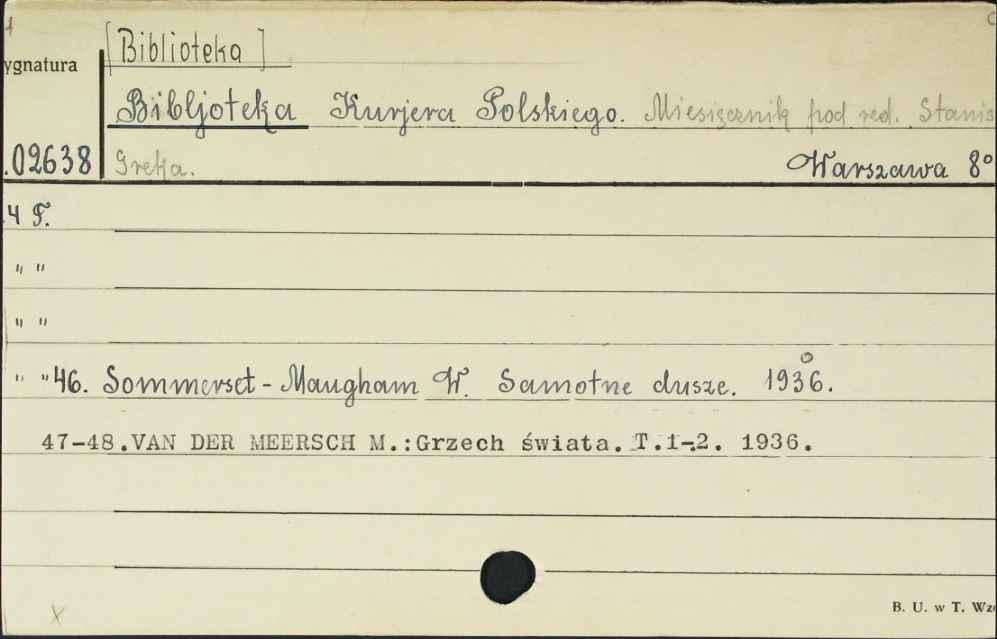 [Biblioteka]
ygnatura
Bibljoteka Kurjera Polskiego. Miesięcznik pod red. Stanis
.02638 Greka. Warszawa 8°
4 F.
" "
" "
" " 46. Sommerset-Maugham W. Samotne dusze. 1936.
47-48.VAN DER MEERSCH M.:Grzech świata. T.1-2. 1936.
X
B. U. w T. Wz